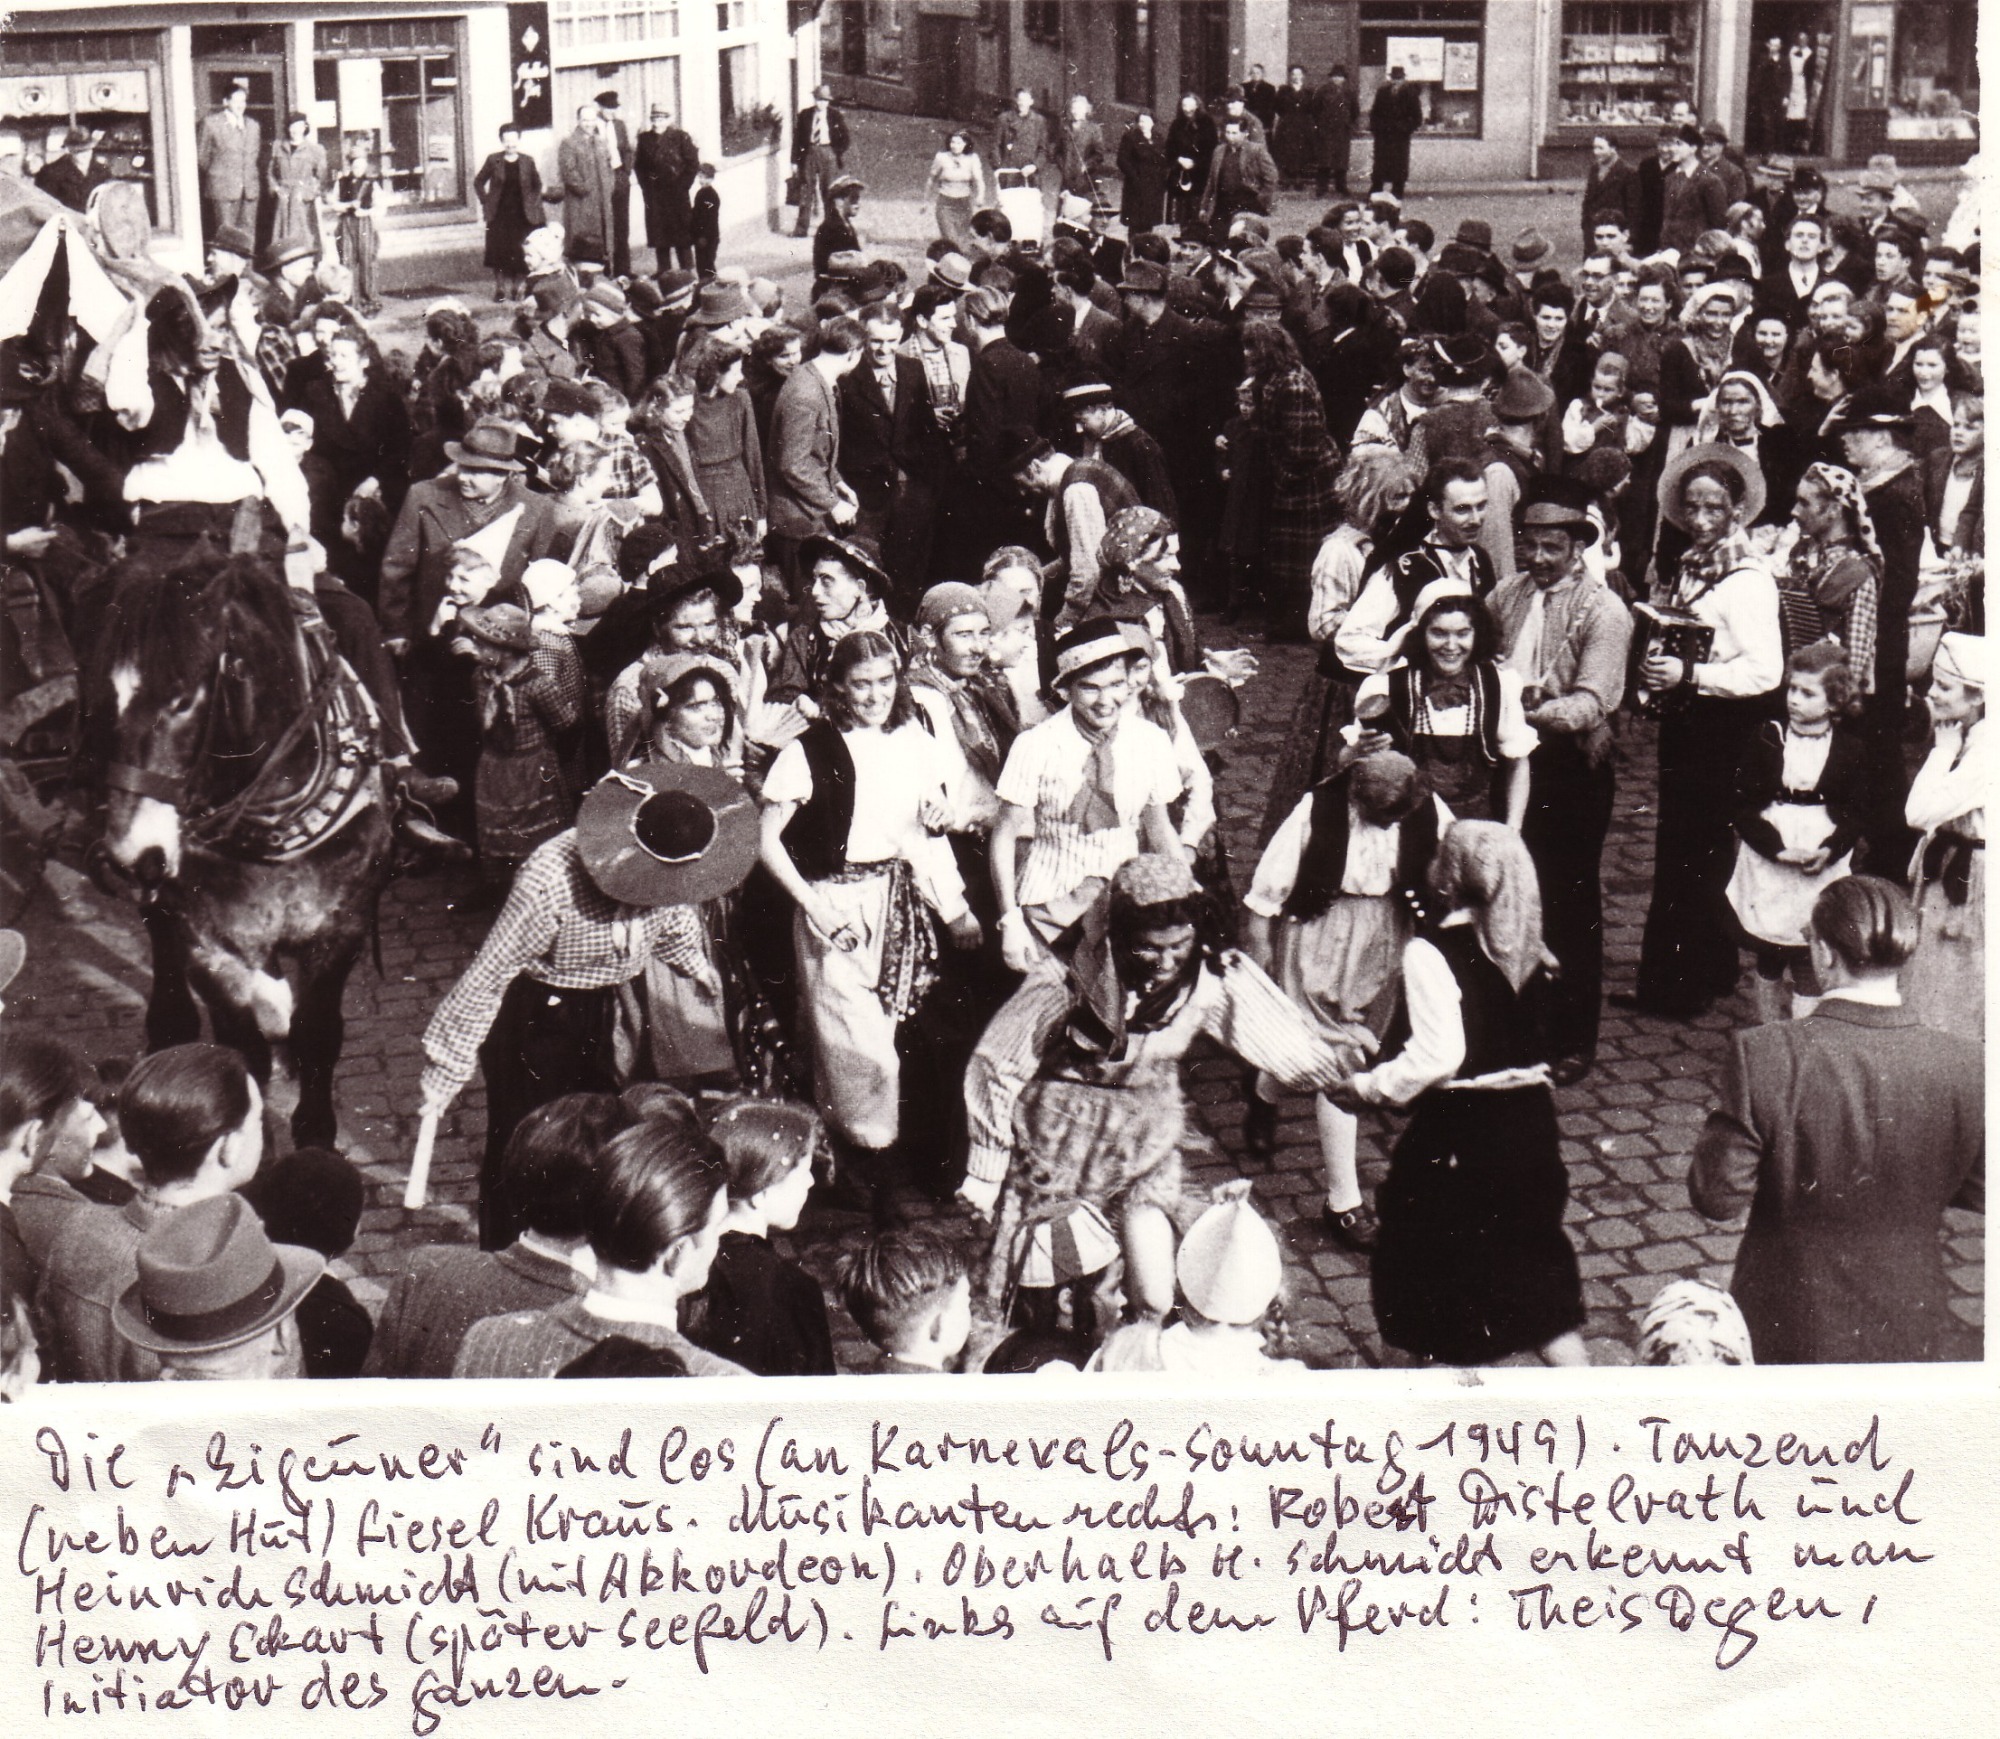 Die „Zigeuner" sind los (an Karnevals-Sonntag 1949). Tanzend
(neben Hut) Liesel Kraus. Musikanten rechts: Robert Distelrath und
Heinrich Schmidt (mit Akkordeon). Oberhalb H. Schmidt erkennt man
Henny Eckart (später Seefeld). Links auf dem Pferd: Theis Degen,
Initiator des ganzen.